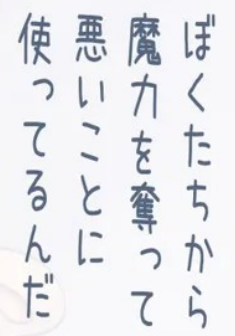 ぼくたちから
魔力を奪って
悪いことに
使ってるんだ